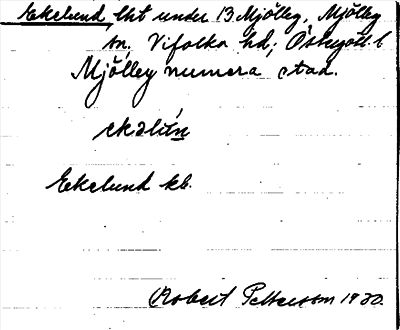 Ekelund lht under 13 Mjölby, Mjölby
sn, Vifolka hd, Östergötl. l
Mjölby numera stad.
Ekelund kb.
Robert Petterson 1920.